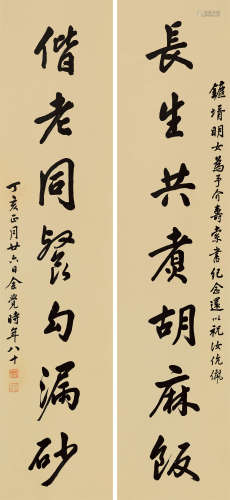 長生共煮胡麻飯
鑣壻明女為予介壽索書紀念還以祝汝伉儷
偕老同餐勾漏砂
丁亥正月廿六日余覺時年八十